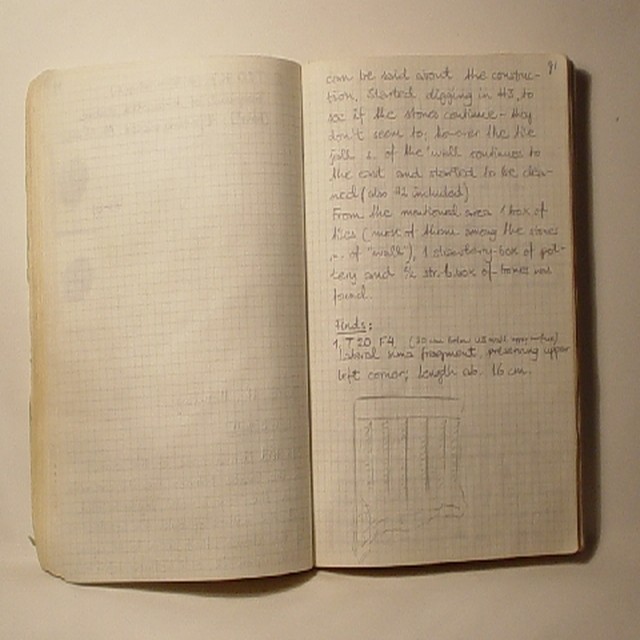 91
can be said about the construc-
tion. Started digging in H3, to
see if the stones continue - they
don't seem to; however the tile
fall s. of the "wall continues to
the east and started to be clea-
ned (also H2 included)
From the mentioned area 1 box of
tiles (most of them among the stones
of "wall"), 1 strawberry-box of pot-
tery and ½ strb.box of bones was
found.
Finds:
1. T 20, F4 (20 cm below
Lateral sima fragment, preserving upper
left corner; Length ab. 16 cm.